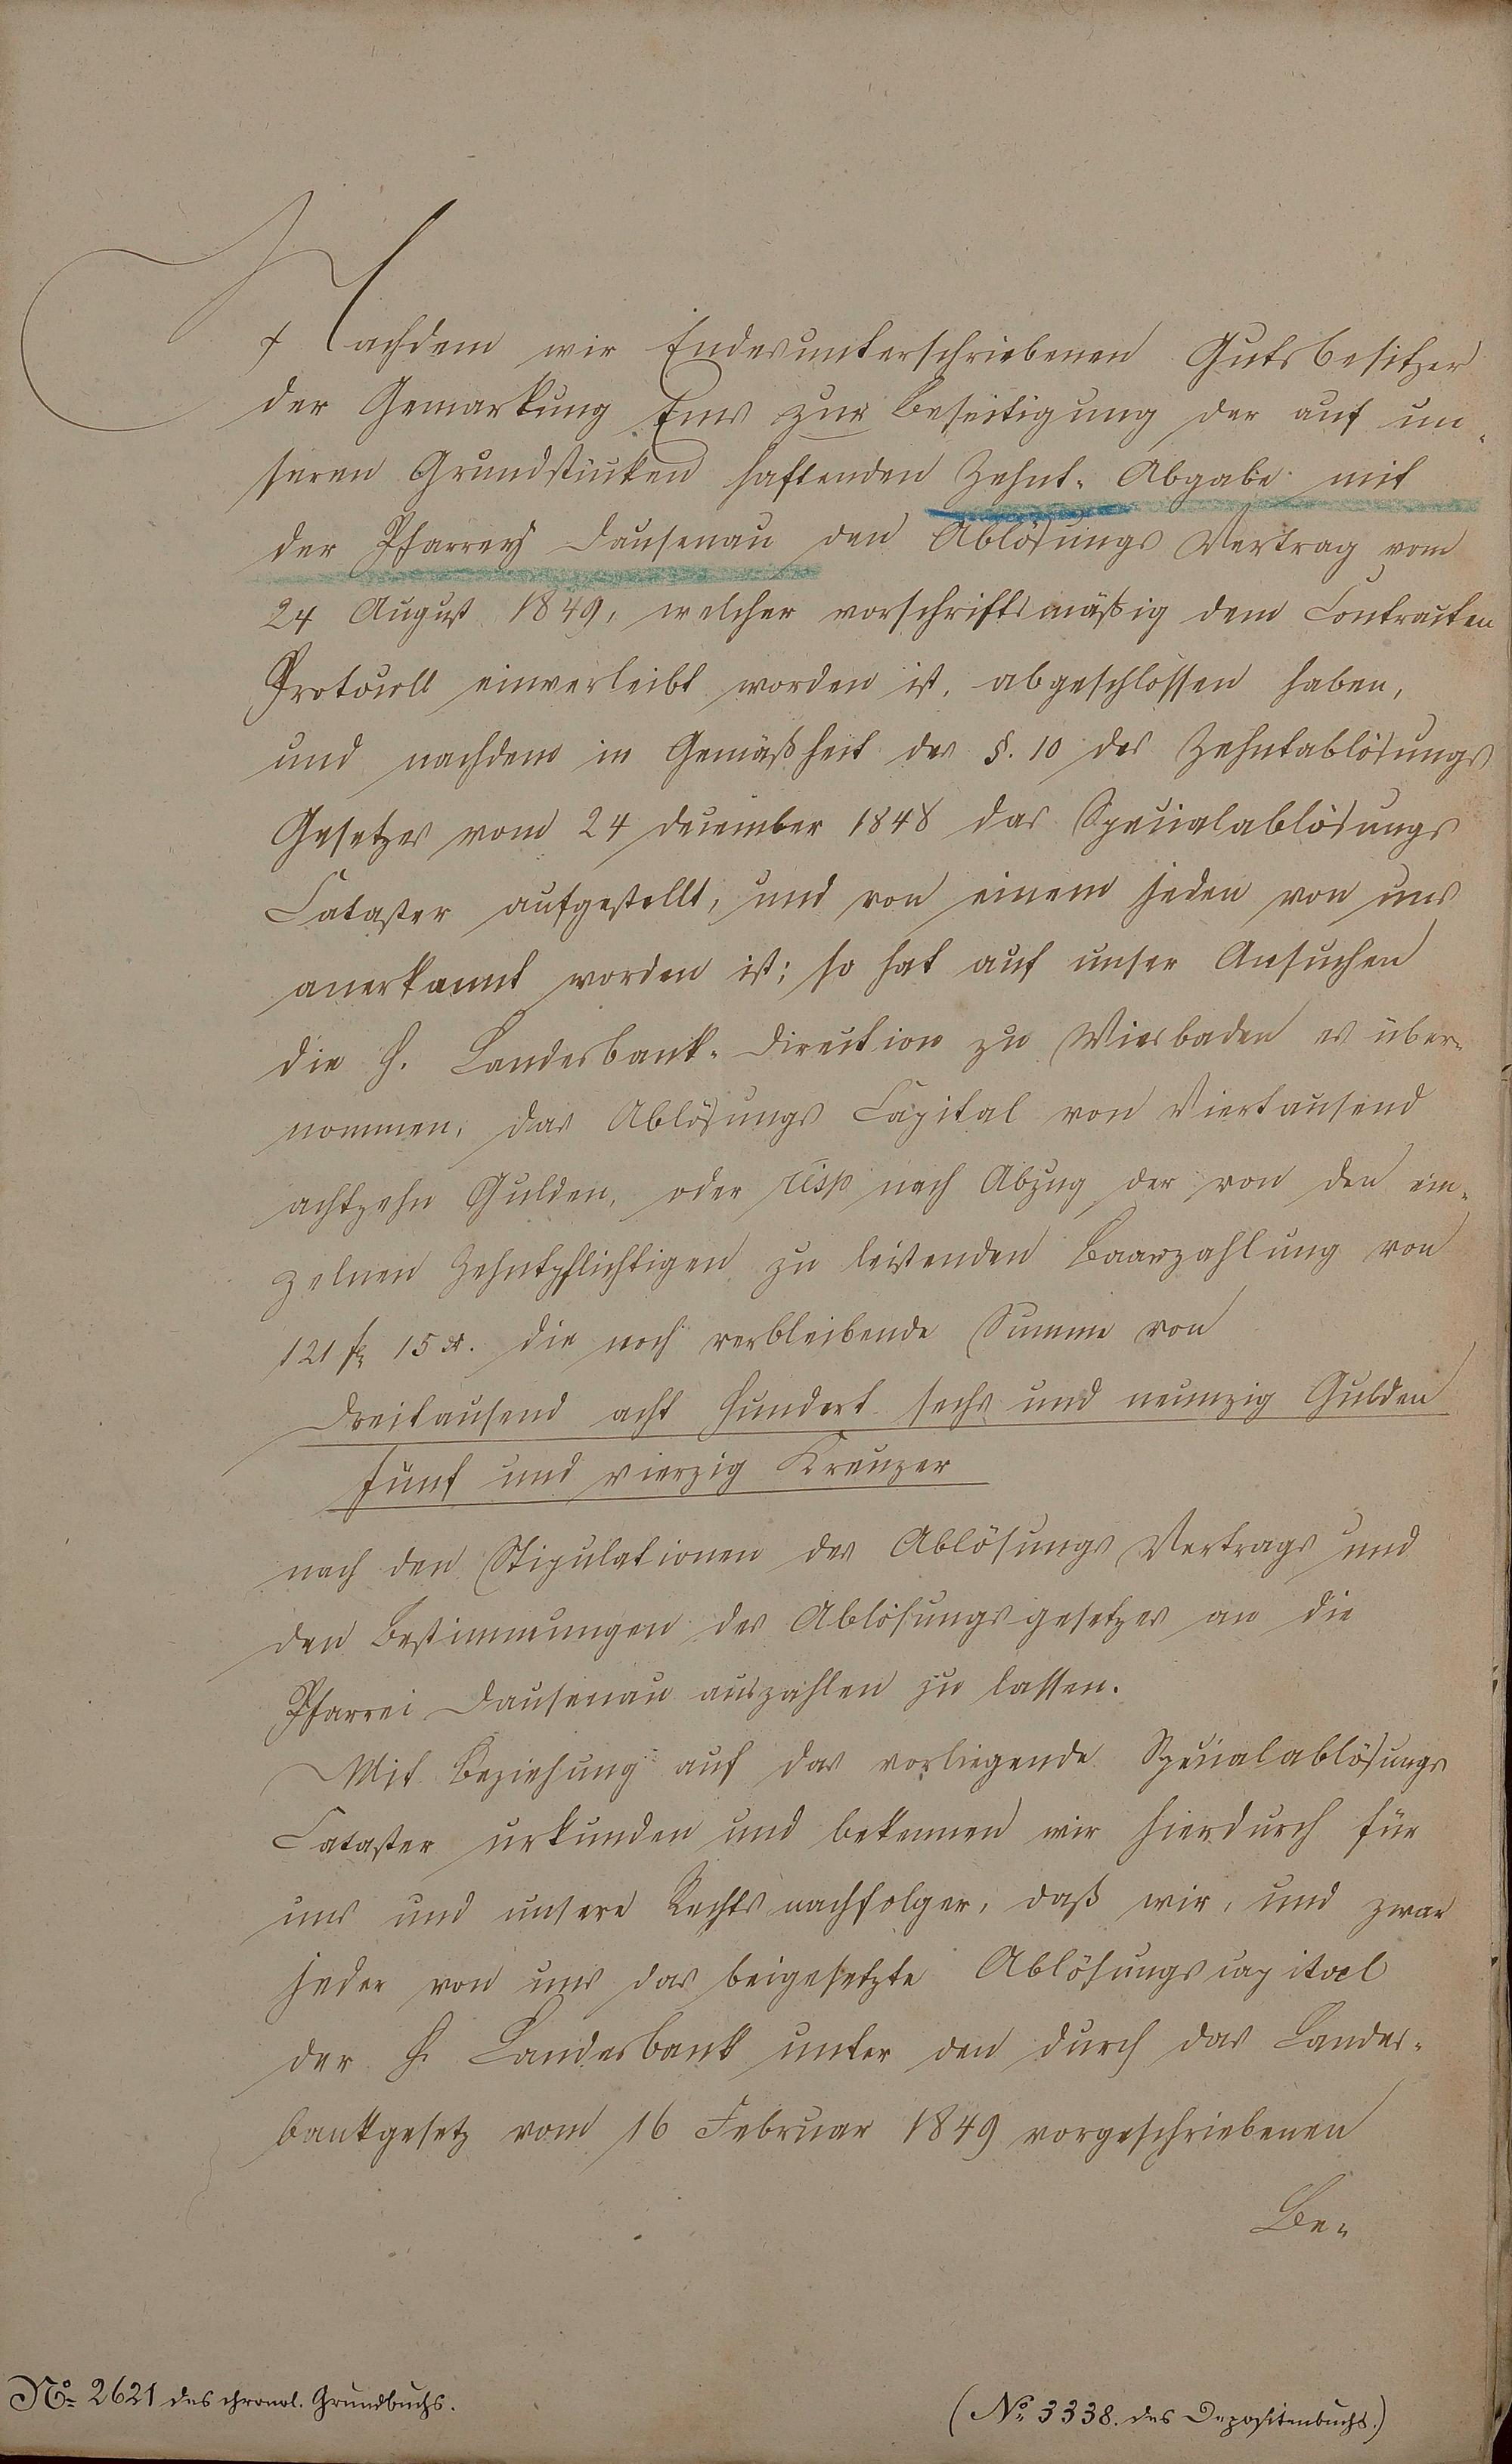 Nachdem wir Endesunterschriebenen Gutsbesitzer
der Gemarkung Ems zur Beseitigung der auf un-
seren Grundstücken haftenden Zehnt-Abgabe mit
der Pfarrey Dausenau den Ablösungs Vertrag vom
24 August 1849, welcher vorschriftsmäßig dem Contracten
Protocoll einverleibt worden ist, abgeschlossen haben,
und nachdem in Gemäßheit des §. 10 des Zehntablösungs
Gesetzes vom 24 December 1848 das Specialablösungs
Cataster aufgestellt, und von einem jeden von uns
anerkannt worden ist; so hat auf unser Ansuchen
die H. Landesbank-Direction zu Wiesbaden es über-
nommen, das Ablösungs Capital von Viertausend
achtzehn Gulden, oder resp nach Abzug der von den ein-
zelnen Zehntpflichtigen zu leistenden Baarzahlung von
121 fl 15 xr. die noch verbleibende Summe von
Dreitausend acht Hundert sechs und neunzig Gulden
fünf und vierzig Kreuzer
nach den Stipulationen des Ablösungs Vertrags und
den Bestimmungen des Ablösungsgesetzes an die
Pfarrei Dausenau auszahlen zu lassen.
Mit Beziehung auf das vorliegende Specialablösungs
Cataster urkunden und bekennen wir hierdurch für
uns und unsere Rechtsnachfolger, daß wir, und zwar
jeder von uns das beigesetzte Ablösungscapital
der H. Landesbank unter den durch das Landes-
bankgesetz vom 16 Februar 1849 vorgeschriebenen
Be-
No. 2621 des chronol. Grundbuchs.
(No. 3338. des Depositenbuchs.)